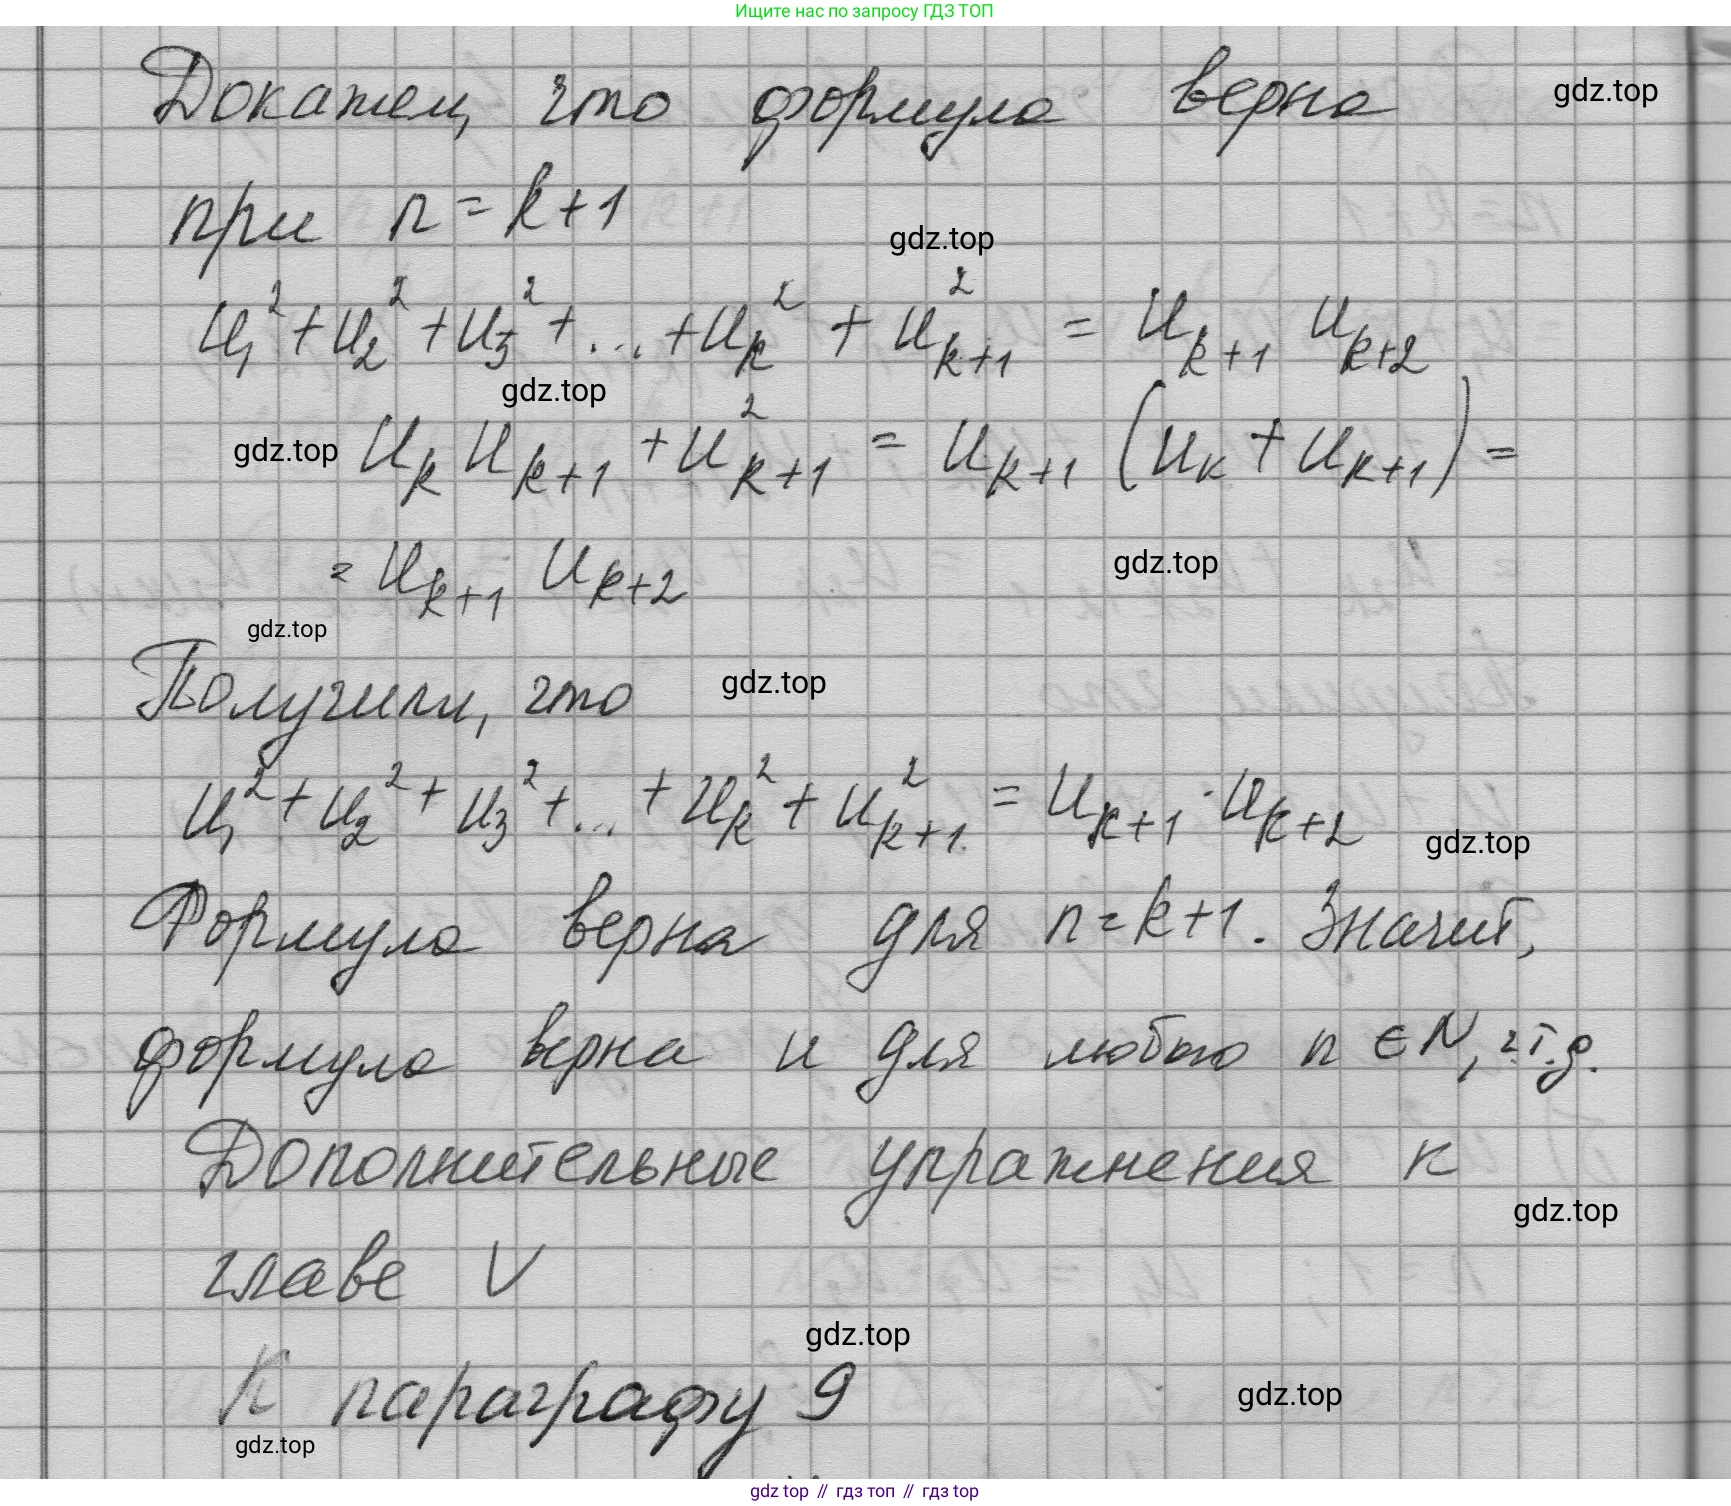 Ищите нас по запросу ГДЗ ТОП
Докажем, что формула верна gdz.top
при n = k+1
gdz.top
u₁² + u₂² + u₃² + ... + u_k² + u_{k+1}² = u_{k+1} u_{k+2}
gdz.top
gdz.top u_k u_{k+1} + u_{k+1}² = u_{k+1} (u_k + u_{k+1}) =
= u_{k+1} u_{k+2} gdz.top
gdz.top
Получили, что gdz.top
u₁² + u₂² + u₃² + ... + u_k² + u_{k+1}² = u_{k+1} · u_{k+2}
gdz.top
Формула верна для n = k+1. Значит,
формула верна и для любого n ∈ N, ч.т.д.
Дополнительные упражнения к
gdz.top
главе V
gdz.top
К параграфу 9 gdz.top
gdz.top
gdz top // гдз топ // гдз top